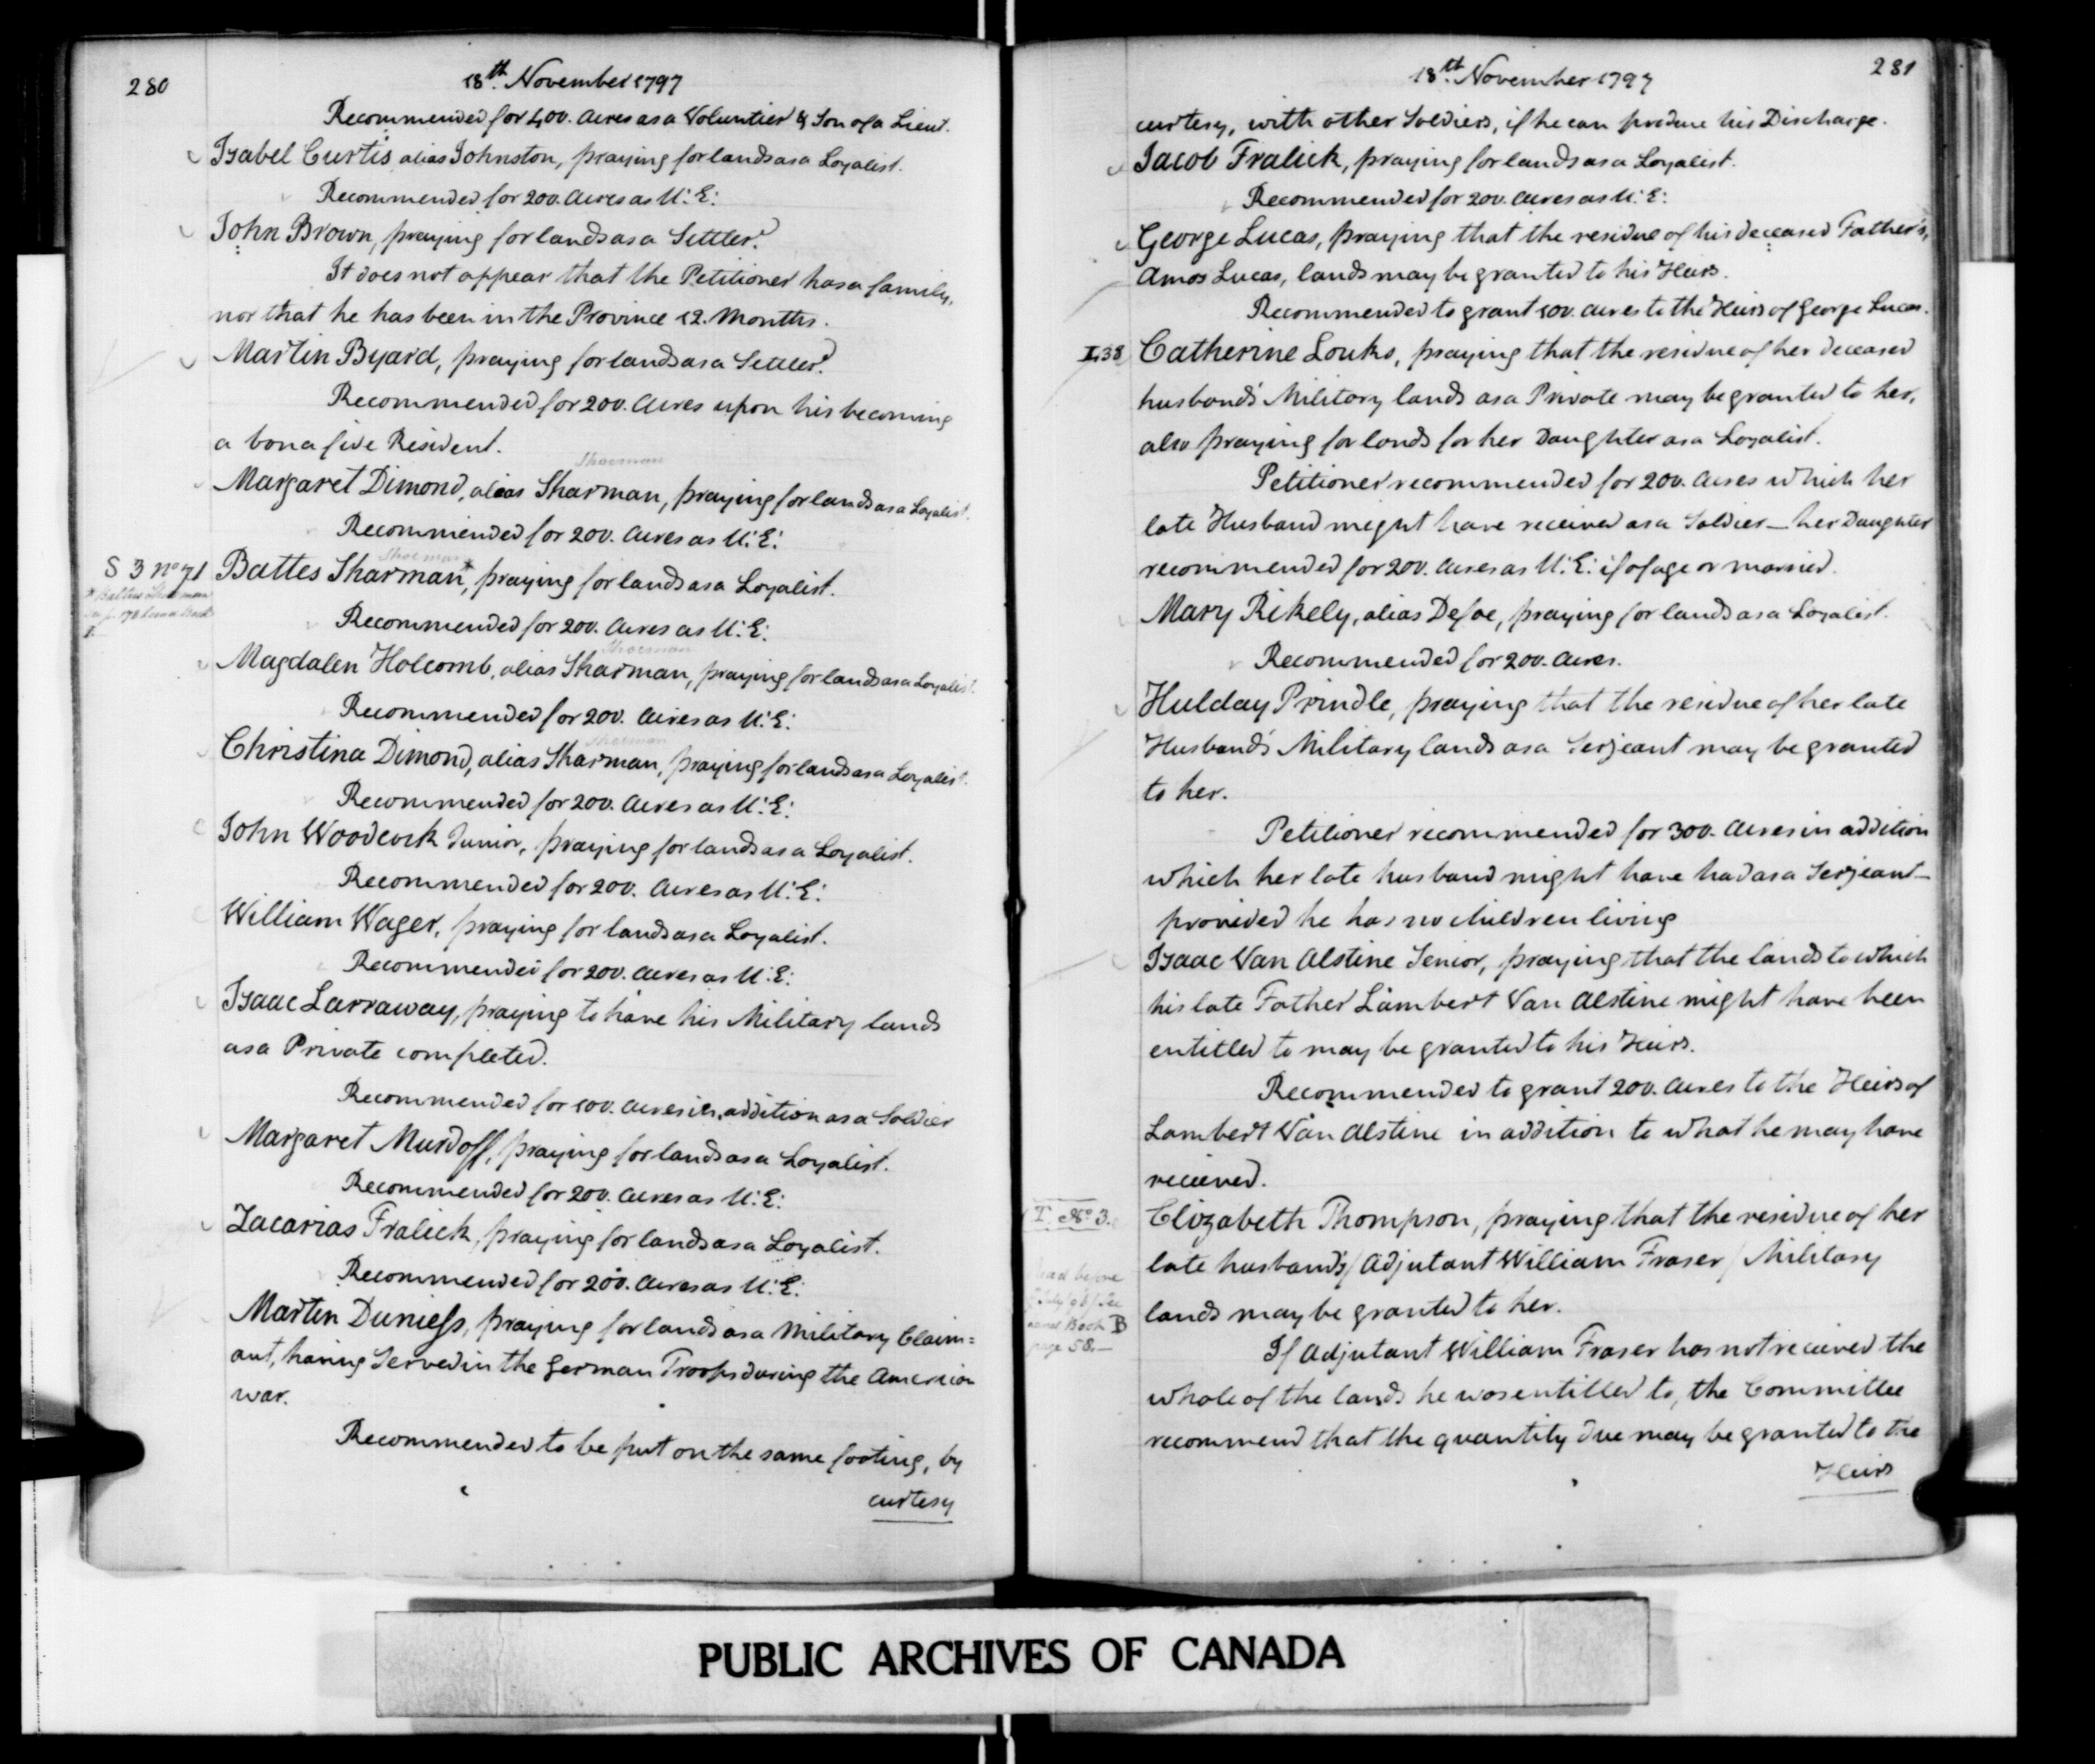 280
18th. November 1797
Recommended for 400. Acres as a Voluntier & Son of a Lieut.
Isabel Curtis alias Johnston, praying for lands as a Loyalist.
Recommended for 200. Acres as U: E:
John Brown, praying for lands as a Settler.
It does not appear that the Petitioner has a family,
nor that he has been in the Province 12. Months.
Martin Byard, praying for lands as a Settler.
Recommended for 200. Acres upon his becoming
a bona fide Resident.
Shoeman
Margaret Dimond, alias Sharman, praying for lands as a Loyalist.
Recommended for 200. Acres as U: E:
Shoeman
S 3 No 71 Battes Sharman, praying for lands as a Loyalist.
Recommended for 200. Acres as U: E:
Shoeman
Magdalen Holcomb, alias Sharman, praying for lands as a Loyalist.
Recommended for 200. Acres as U: E:
Shoeman
Christina Dimond, alias Sharman, praying for lands as a Loyalist.
Recommended for 200. Acres as U: E:
John Woodcock Junior, praying for lands as a Loyalist.
Recommended for 200. Acres as U: E:
William Wager, praying for lands as a Loyalist.
Recommended for 200. Acres as U: E:
Isaac Larraway, praying to have his Military lands
as a Private completed.
Recommended for 100. Acres in addition as a Soldier
Margaret Murdoff, praying for lands as a Loyalist.
Recommended for 200. Acres as U: E:
Zacarias Fralick, praying for lands as a Loyalist.
Recommended for 200. Acres as U: E:
Martin Duniess, praying for lands as a Military Claim=
ant, having Served in the German Troops during the American
war.
Recommended to be put on the same footing, by
curtesy
18th. November 1797
281
curtesy, with other Soldiers, if he can produce his Discharge.
Jacob Fralick, praying for lands as a Loyalist.
Recommended for 200. Acres as U: E:
George Lucas, praying that the residue of his deceased Father's,
Amos Lucas, lands may be granted to his Heirs.
Recommended to grant 100. Acres to the Heirs of George Lucas.
L 38 Catherine Louks, praying that the residue of her deceased
husband's Military lands as a Private may be granted to her,
also praying for lands for her Daughter as a Loyalist.
Petitioner recommended for 200. Acres which her
late Husband might have received as a Soldier — her Daughter
recommended for 200. Acres as U: E: if of age or married.
Mary Rikely, alias Defoe, praying for lands as a Loyalist.
Recommended for 200. Acres.
Hulday Prindle, praying that the residue of her late
Husband's Military lands as a Serjeant may be granted
to her.
Petitioner recommended for 300. Acres in addition
which her late husband might have had as a Serjeant —
provided he has no children living
Isaac Van Alstine Senior, praying that the lands to which
his late Father Lambert Van Alstine might have been
entitled to may be granted to his Heirs.
Recommended to grant 200. Acres to the Heirs of
Lambert Van Alstine in addition to what he may have
received.
T. No. 3. Elizabeth Thompson, praying that the residue of her
late husband's / Adjutant William Fraser / Military
lands may be granted to her.
Read before
Book B
page 58.—
If Adjutant William Fraser has not received the
whole of the lands he was entitled to, the Committee
recommend that the quantity due may be granted to the
Heirs
PUBLIC ARCHIVES OF CANADA